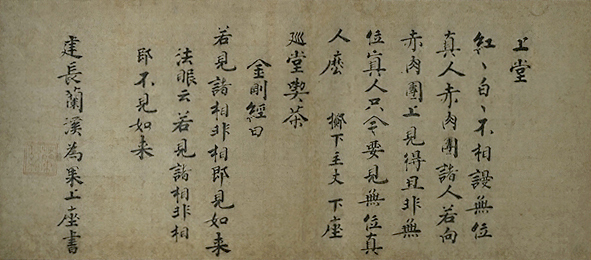 上堂
紅〻白〻不相謾無位
真人赤肉團諸人若向
赤肉團上見得且非無
位真人只今要見無位真
人麼 擲下主丈 下座
巡堂喫茶
金剛經曰
若見諸相非相即見如来
法眼云若見諸相非相
即不見如来
建長蘭溪為杲上座書